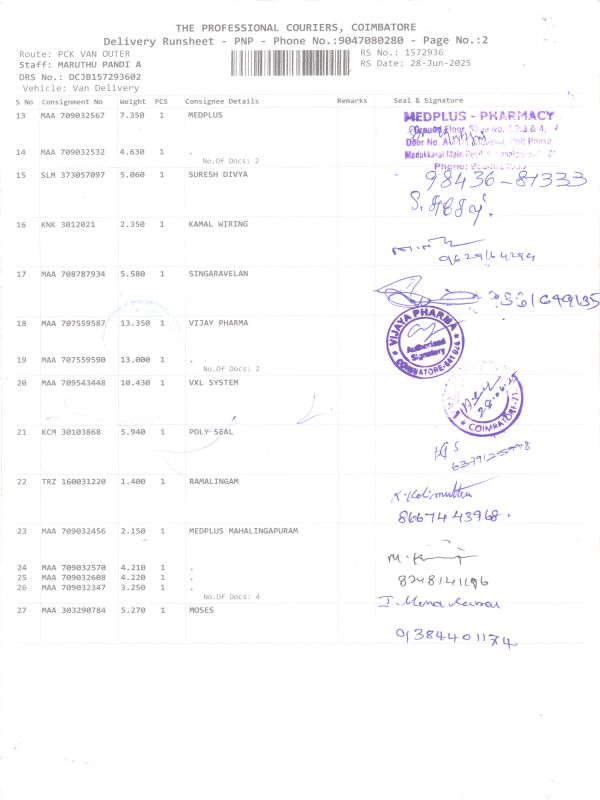 THE PROFESSIONAL COURIERS, COIMBATORE
Delivery Runsheet - PNP - Phone No.:9047080280 - Page No.:2
Route: PCK VAN OUTER RS No.: 1572936
Staff: MARUTHU PANDI A RS Date: 28-Jun-2025
DRS No.: DCJB157293602
Vehicle: Van Delivery
S No Consignment No Weight PCS Consignee Details Remarks Seal & Signature
13 MAA 709032567 7.350 1 MEDPLUS
MEDPLUS - PHARMACY
14 MAA 709032532 4.630 1 .
No.Of Docs: 2
Phone:
15 SLM 373057097 5.060 1 SURESH DIVYA
98436-81333
16 KNK 3012021 2.350 1 KAMAL WIRING
9629164294
17 MAA 708787934 5.580 1 SINGARAVELAN
18 MAA 707559587 13.350 1 VIJAY PHARMA
VIJAYA PHARMA
Authorised
Signatory
COIMBATORE-641 024
19 MAA 707559590 13.000 1 .
No.Of Docs: 2
20 MAA 709543448 10.430 1 VXL SYSTEM
COIMBATORE-21
21 KCM 30103868 5.940 1 POLY SEAL
22 TRZ 160031220 1.400 1 RAMALINGAM
K. Kalimuthu
8667443968.
23 MAA 709032456 2.150 1 MEDPLUS MAHALINGAPURAM
24 MAA 709032570 4.210 1 .
25 MAA 709032608 4.220 1 .
26 MAA 709032347 3.250 1 .
No.Of Docs: 4
8248141196
27 MAA 303290784 5.270 1 MOSES
9384401174